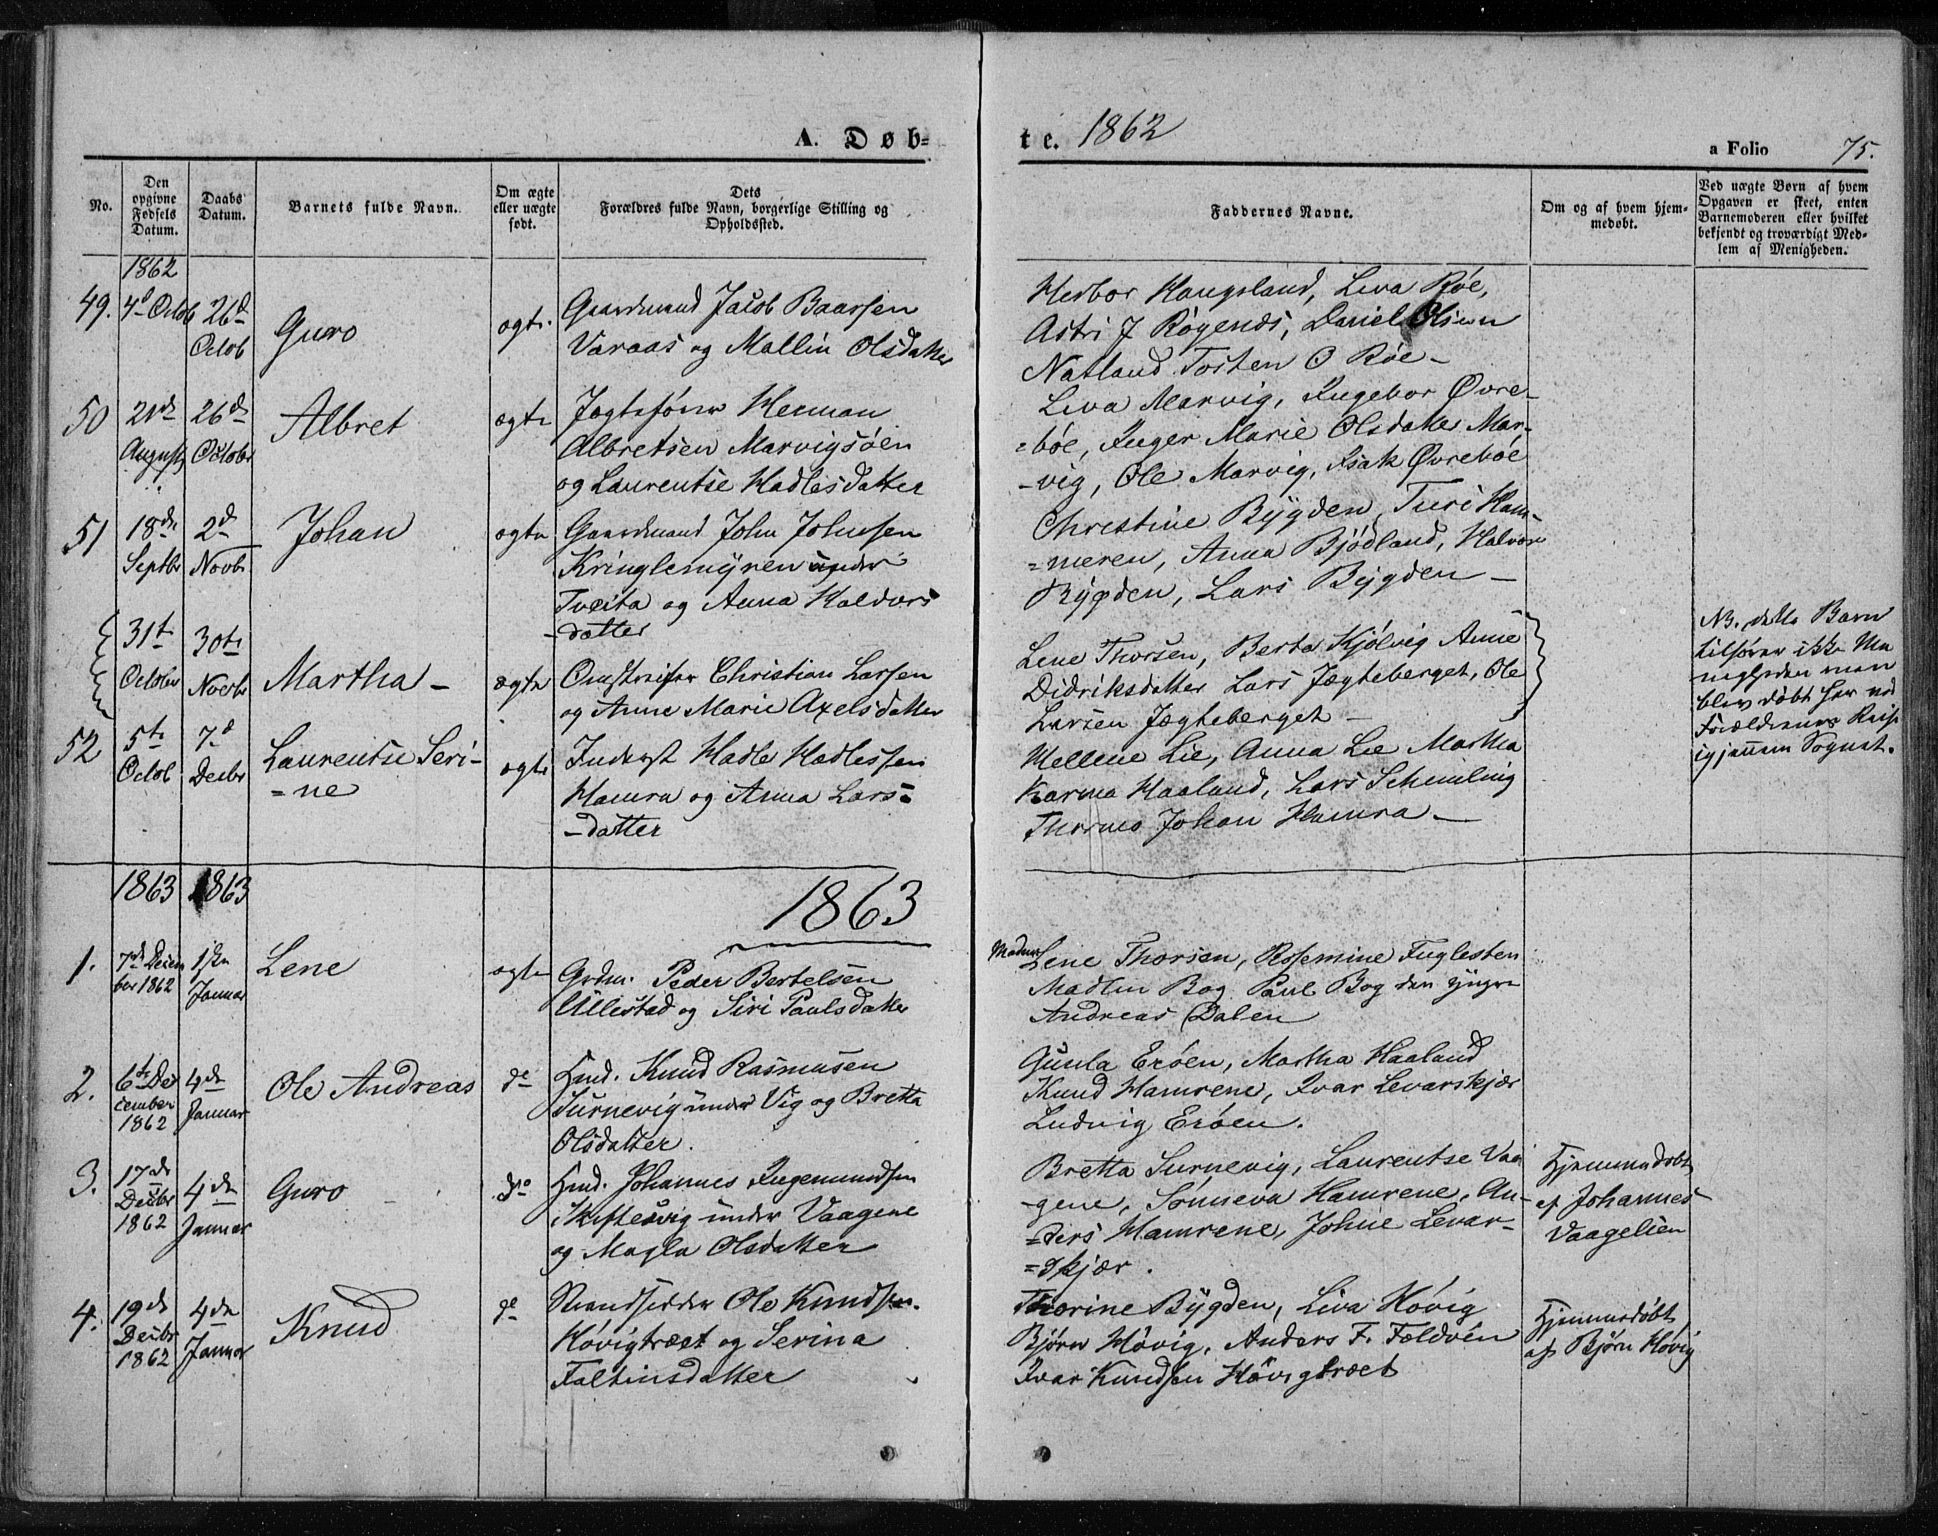 A. Døb=
te. 1862
a Folio 75.
No.
Den opgivne Fødsels Datum.
Daabs Datum.
Barnets fulde Navn.
Om ægte eller uægte født.
Dets Forældres fulde Navn, borgerlige Stilling og Opholdssted.
Faddernes Navne.
Om og af hvem hjemmedøbt.
Ved uægte Børn af hvem Opgaven er skeet, enten Barnemoderen eller hvilket bekjendt og troværdigt Medlem af Menigheden.
1862
49. 4d Octob 26d Octob
Guro
ægte
Gaardmand Jacob Baarsen
Varaas og Mallin Olsdatter
Herbor Haugsland, Liva Røe,
Astri J Røgenes, Daniel Olsen
Natland Tosten O Røe –
50 21de August 26de Octobr
Albret
ægte
Jagtefører Herman
Albretsen Marvigsøen
og Laurentse Hadlesdatter
Liva Marvig, Ingebor Øvre-
=bøe, Inger Marie Olsdatter Mar-
-vig, Ole Marvig, Isak Øvrebøe
51 18de Septbr 2d Novbr
Johan
ægte
Gaardmand John Johnsen
Kringlemyren under
Tveita og Anna Haldors
-datter
Christine Bygden, Turi Ham-
=meren, Anna Bjødland, Halvor
Bygden, Lars Bygden –
31te Octobr 30te Novbr
Martha –
ægte
Omstreifer Christian Larsen
og Anne Marie Axelsdatter
Lene Thorsen, Berta Kjølvig Anne
Didriksdatter Lars Jægteberget, Ole
Larsen Jægteberget –
NB. dette Barn
tilhører ikke Me
nigheden men
blev døbt her ved
Forældrenes Reise
igjennem Sognet.
52 5te Octob 7d Decbr
Laurentse Seri-
=ne
ægte
Inderst Hadle Hadlessen
Hamra og Anna Lars=
-datter
Mellene Lie, Anna Lie Martha
Karina Haaland, Lars Schmiling
Thormo Johan Hamra –
1863 1863
1863
1. 7de Decem
ber 1862
1ste Januar
Lene
ægte
Grdm. Peder Bertelsen
Ullestad og Siri Paulsdatter
Madme Lene Thorsen, Rosemine Fuglesten
Madlin Bog Paul Bog den yngre
Andreas Dalen
2. 6te De
cember
1862
4de Januar
Ole Andreas
do
Hmd. Knud Rasmusen
Surnevig under Vig og Bretta
Olsdatter.
Gunla Erøen, Martha Haaland
Knud Hamrene, Ivar Levarskjær
Ludvig Erøen.
3. 17de
Decbr
1862
4de Januar
Guro
do
Hmd. Johannes Ingemundsen
Skiftesvig under Vaagene
og Magla Olsdatter
Bretta Surnevig, Laurentse Vaa
-gene, Sønneva Hamrene, An-
=ders Hamrene, Johne Levar-
=skjær.
Hjemmedøbt
af Johannes
Vaagelien
4. 19de
Decbr
1862
4de Januar
Knud
do
Strandsidder Ole Knudsen.
Høvigtræet og Serina
Faltinsdatter
Thorine Bygden, Liva Høvig
Bjørn Høvig, Anders F. Fældøen
Ivar Knudsen Høvigtræet
Hjemmedøbt
af Bjørn Høvig